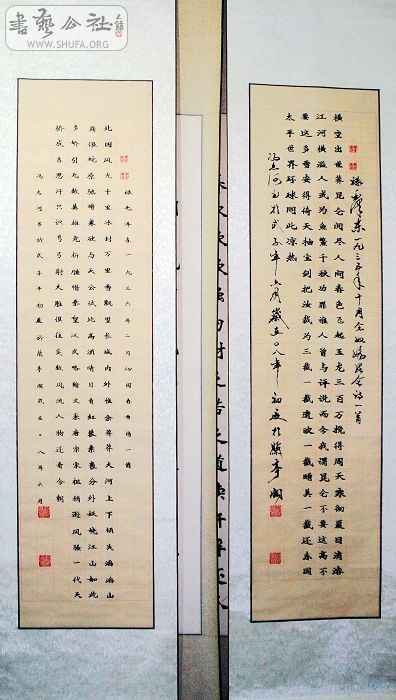 書藝公社
WWW.SHUFA.ORG
录毛泽东一九三五年十月念奴娇昆仑词一首
横空出世莽昆仑阅尽人间春色飞起玉龙三百万搅得周天寒彻夏日消溶
江河横溢人或为鱼鳖千秋功罪谁人曾与评说而今我谓昆仑不要这高不
要这多雪安得倚天抽宝剑把汝裁为三截一截遗欧一截赠美一截还东国
太平世界环球同此凉热
冯志河书於戊子年六月岁在二〇〇八年初夏於
录毛泽东一九三六年二月沁园春雪词一首
北国风光千里冰封万里雪飘望长城内外惟余莽莽大河上下顿失滔滔山
舞银蛇原驰蜡象欲与天公试比高须晴日看红装素裹分外妖娆江山如此
多娇引无数英雄竞折腰惜秦皇汉武略输文采唐宗宋祖稍逊风骚一代天
骄成吉思汗只识弯弓射大雕俱往矣数风流人物还看今朝
冯志河书於戊子年初夏於亭阁岁在八年六月